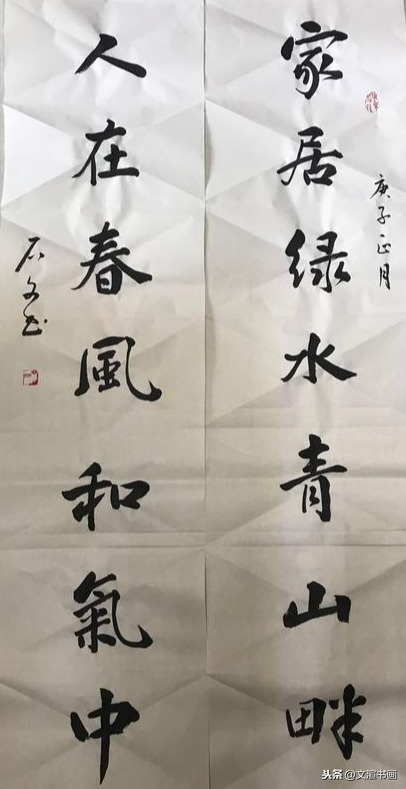 家居绿水青山畔
庚子正月
人在春風和氣中
石文书
头条@文渲书画